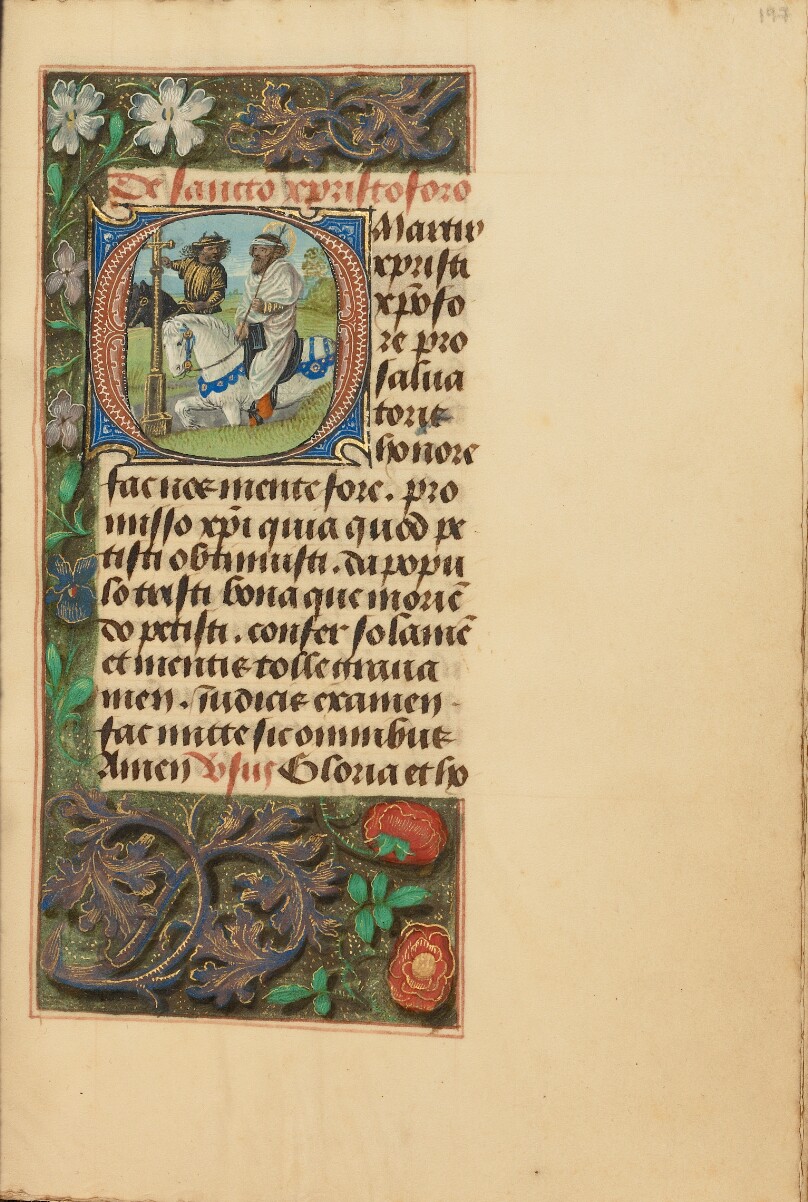 197
De sancto xpristoforo
Martir
xpristi
xp̄ofo
re pro
saluā
toris
honore
fac nos mente fore. pro
misso xp̄i quia quod pe
tisti obtinuisti. da popu
lo tristi bona que moriē
do petisti. confer solamē
et mentis tolle graua
men. iudicis examen
fac mitte sit omnibus
Amen Vsus Gloria et ho